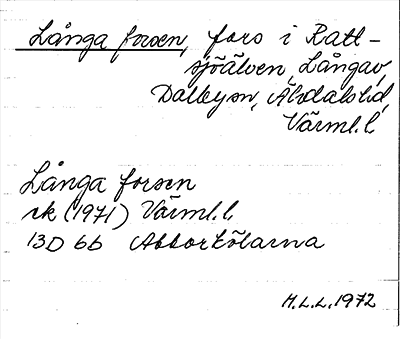 Långa forsen, fors i Ratt-
sjöälven, Långav,
Dalbysn, Älvdalshd,
Värml.l.
Långa forsen
ek (1971) Värml.l.
13D 6b Abborkölarna
H.L.L. 1972